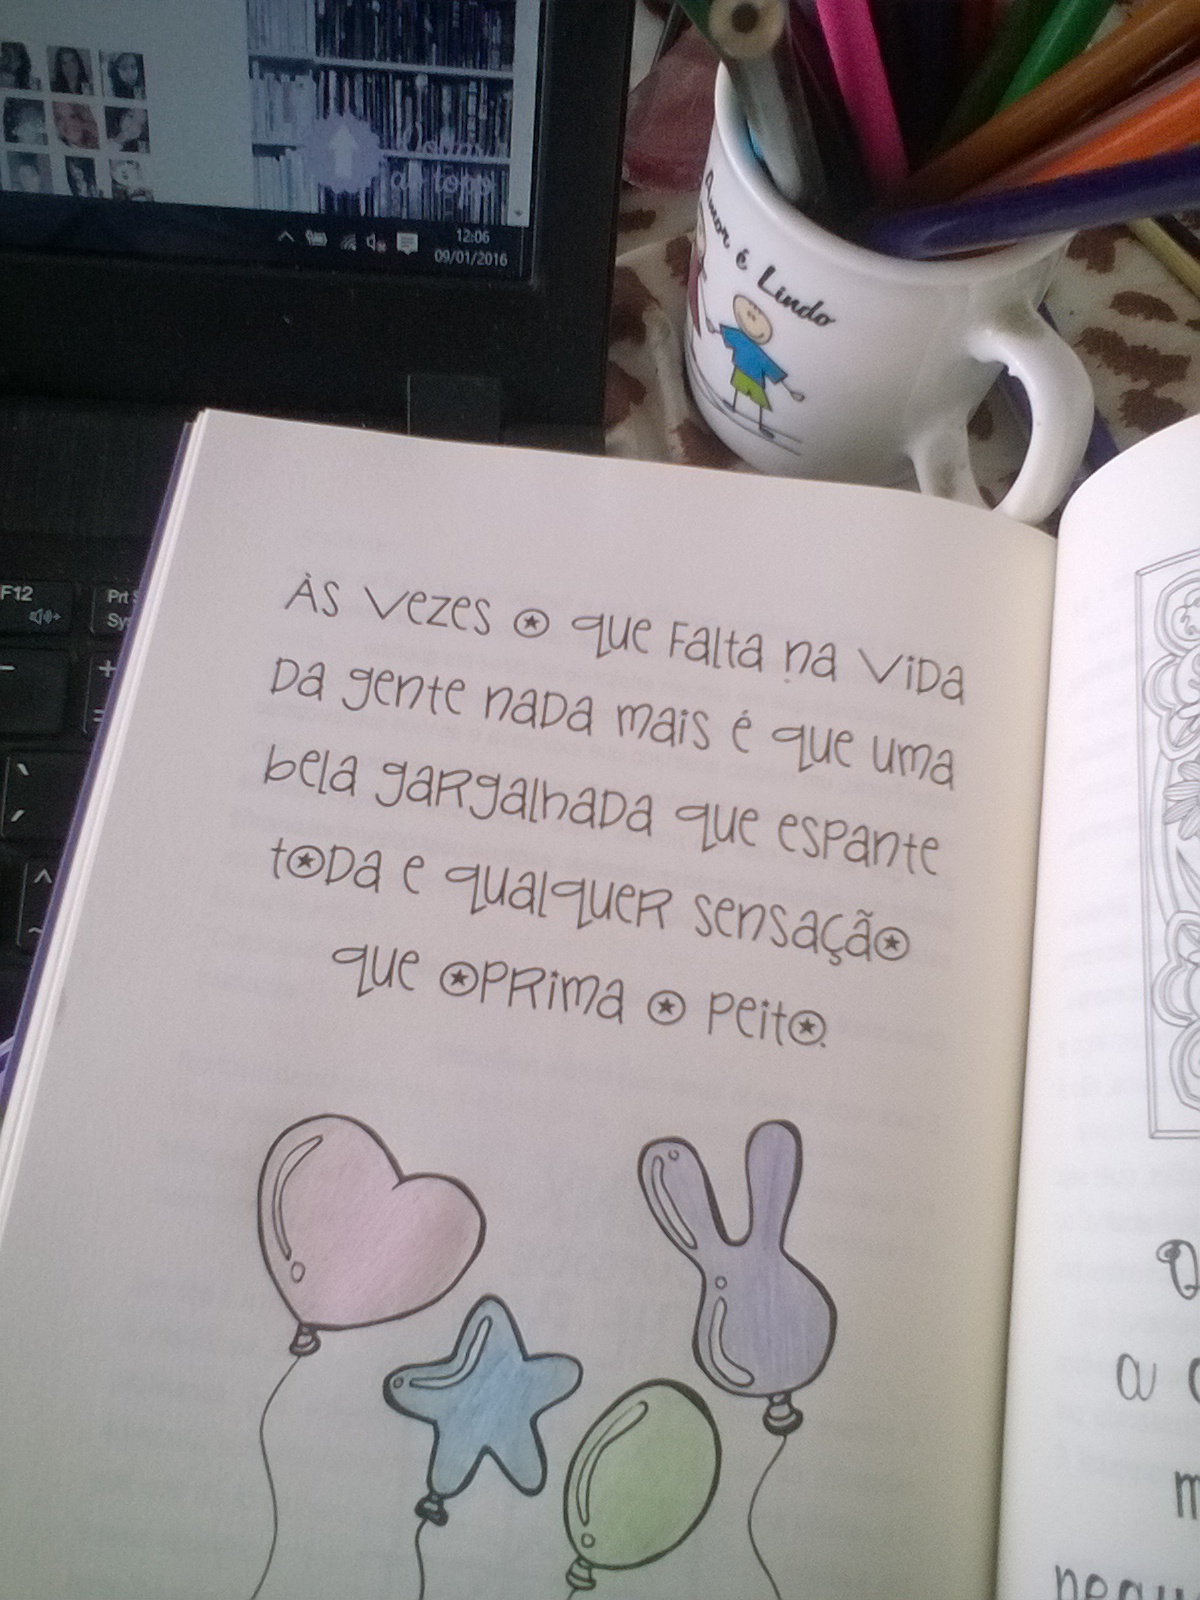 12:06
09/01/2016
Amor é Lindo
F12
Prt S
Sy
Às vezes o que falta na vida
da gente nada mais é que uma
bela gargalhada que espante
toda e qualquer sensação
que oprima o peito.
a
m